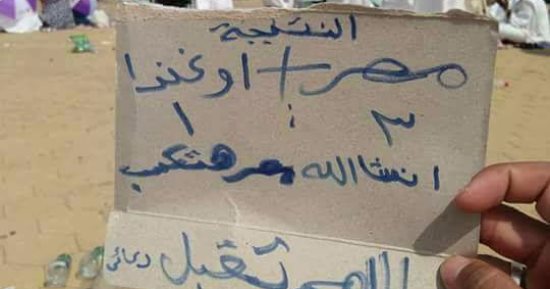 النتيجة
مصر + اوغندا
٣ : ١
انشاالله مصر هتكسب
اللهم تقبل دعائى